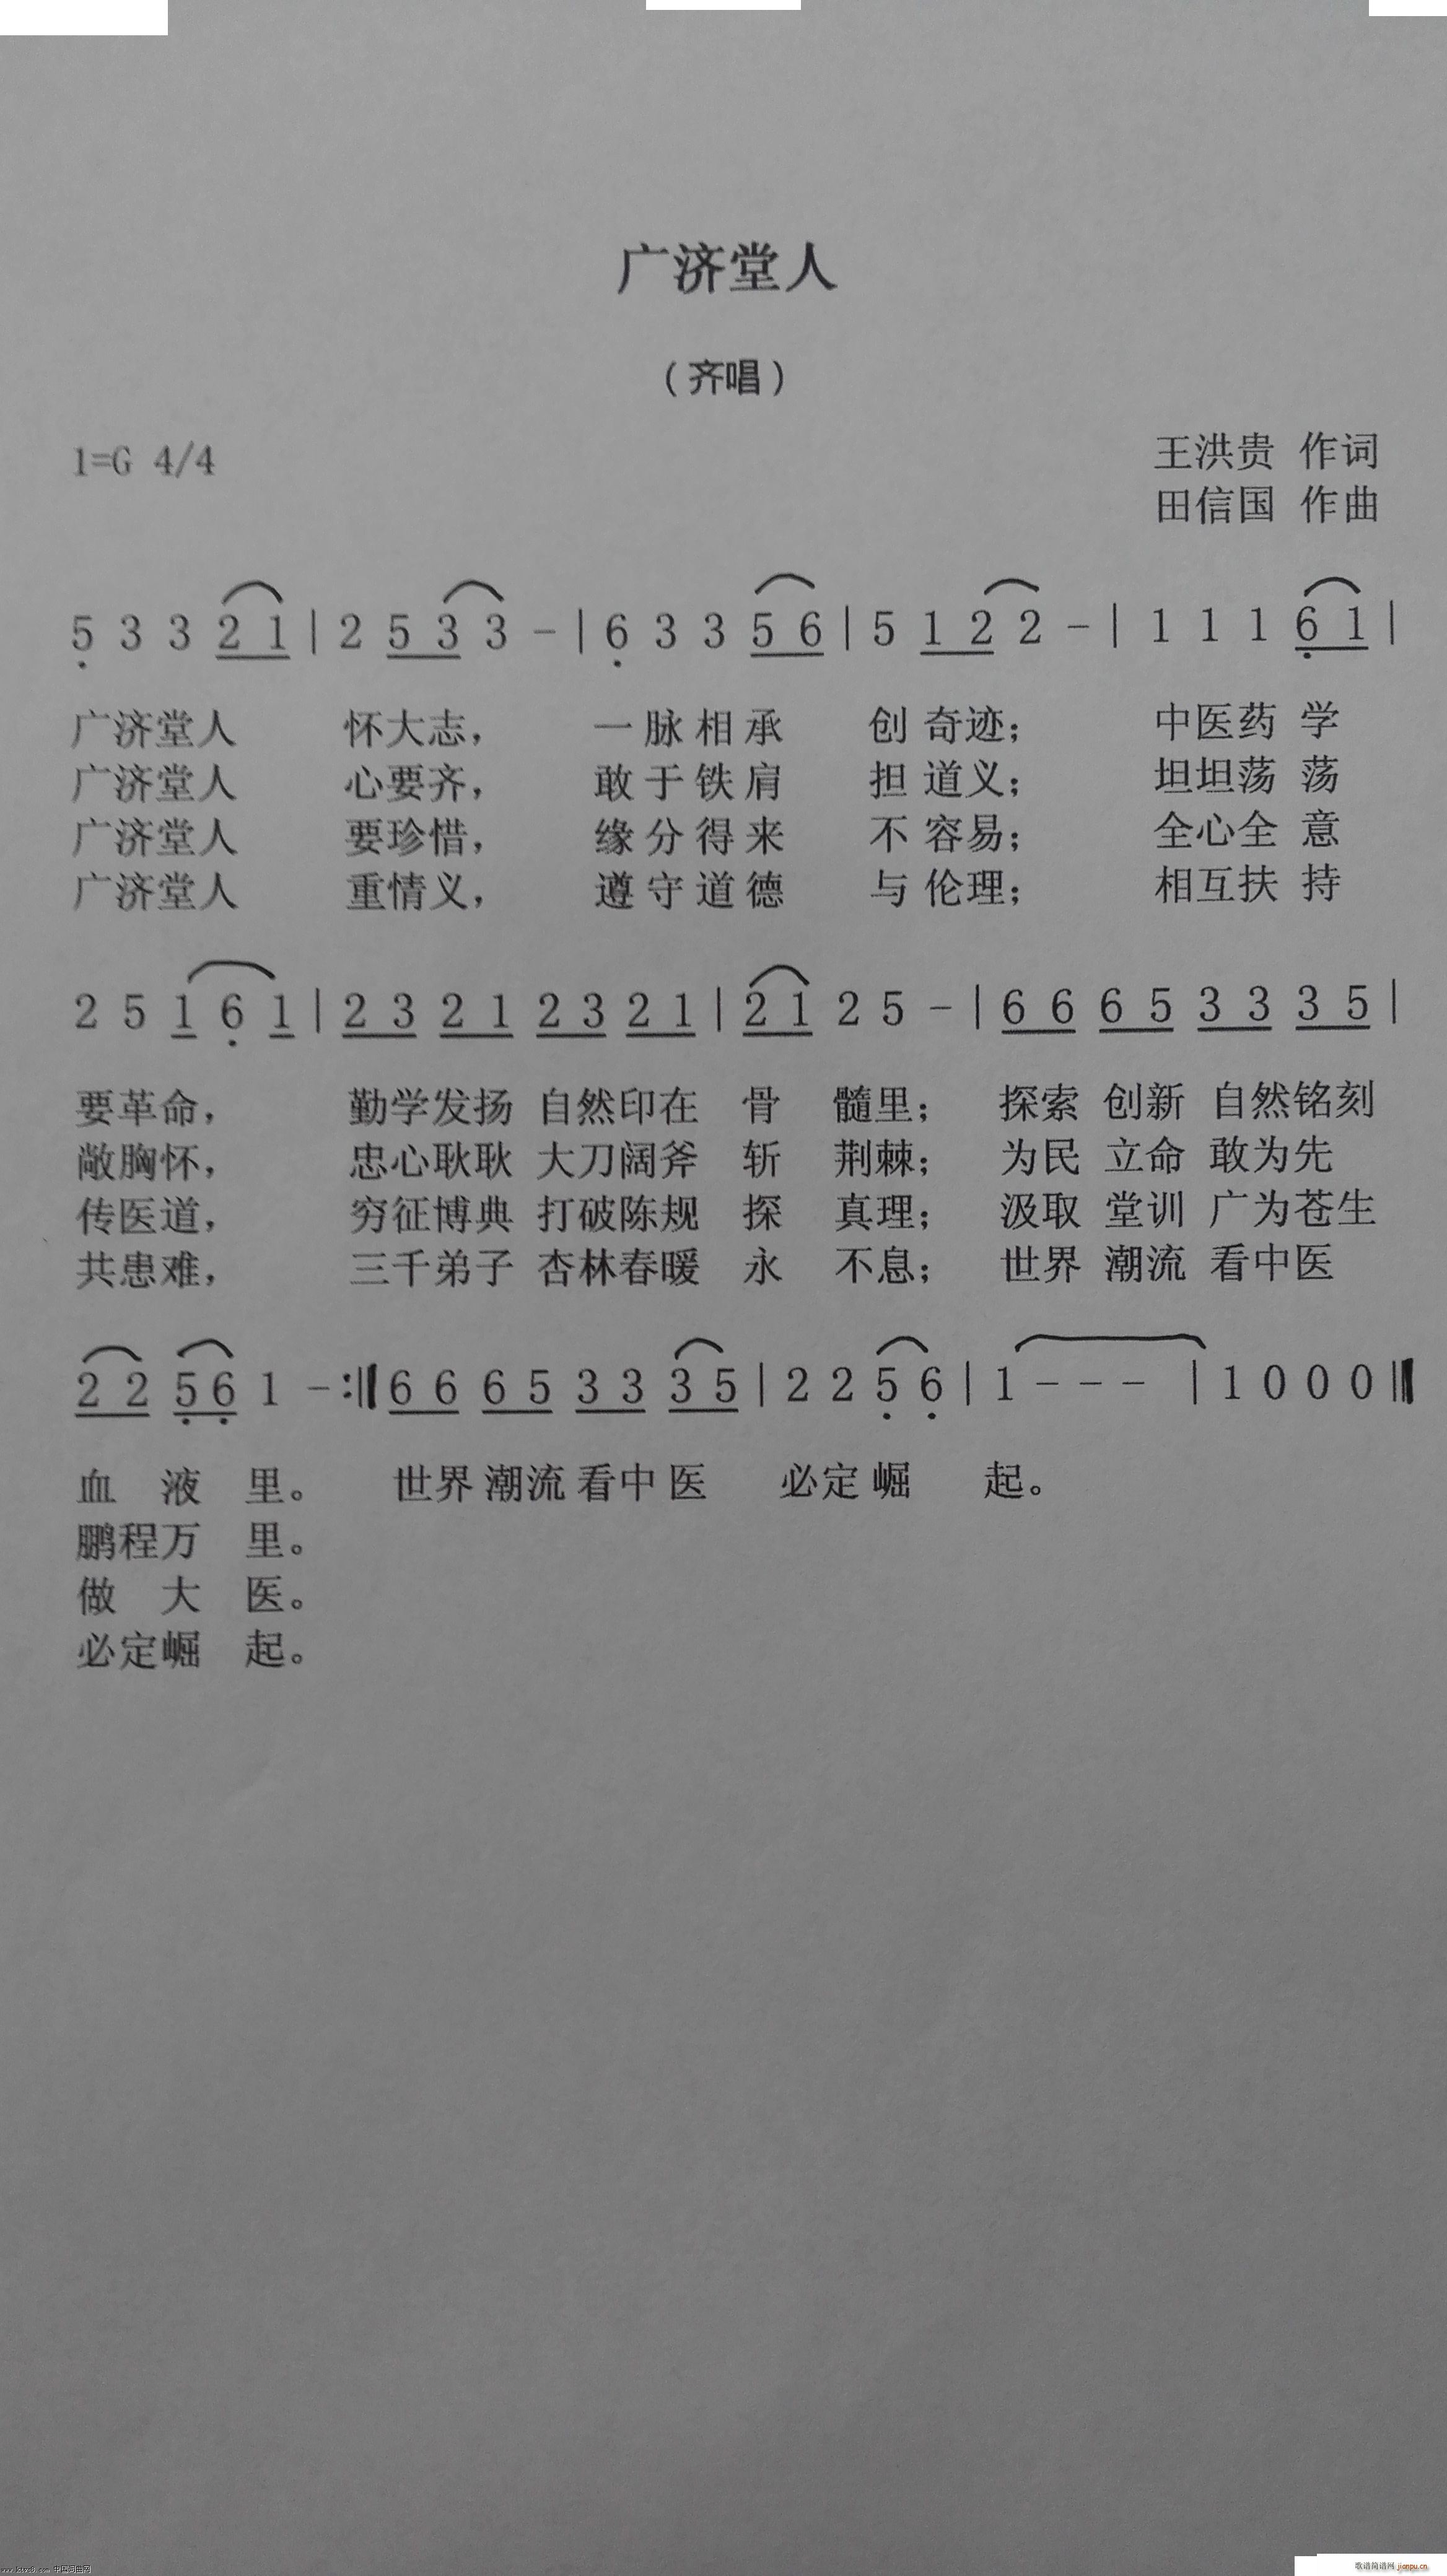 广济堂人
（齐唱）
1=G 4/4
王洪贵 作词
田信国 作曲
5 3 3 2 1 | 2 5 3 3 - | 6 3 3 5 6 | 5 1 2 2 - | 1 1 1 6 1 |
广济堂人 怀大志， 一脉相承 创奇迹； 中医药学
广济堂人 心要齐， 敢于铁肩 担道义； 坦坦荡荡
广济堂人 要珍惜， 缘分得来 不容易； 全心全意
广济堂人 重情义， 遵守道德 与伦理； 相互扶持
2 5 1 6 1 | 2 3 2 1 2 3 2 1 | 2 1 2 5 - | 6 6 6 5 3 3 3 5 |
要革命， 勤学发扬 自然印在 骨 髓里； 探索 创新 自然铭刻
敞胸怀， 忠心耿耿 大刀阔斧 斩 荆棘； 为民 立命 敢为先
传医道， 穷征博典 打破陈规 探 真理； 汲取 堂训 广为苍生
共患难， 三千弟子 杏林春暖 永 不息； 世界 潮流 看中医
2 2 5 6 1 - :‖ 6 6 6 5 3 3 3 5 | 2 2 5 6 | 1 - - - | 1 0 0 0 ‖
血 液 里。 世界 潮流 看中 医 必定 崛 起。
鹏程万 里。
做 大 医。
必定崛 起。
歌谱简谱网 jianpu.cn